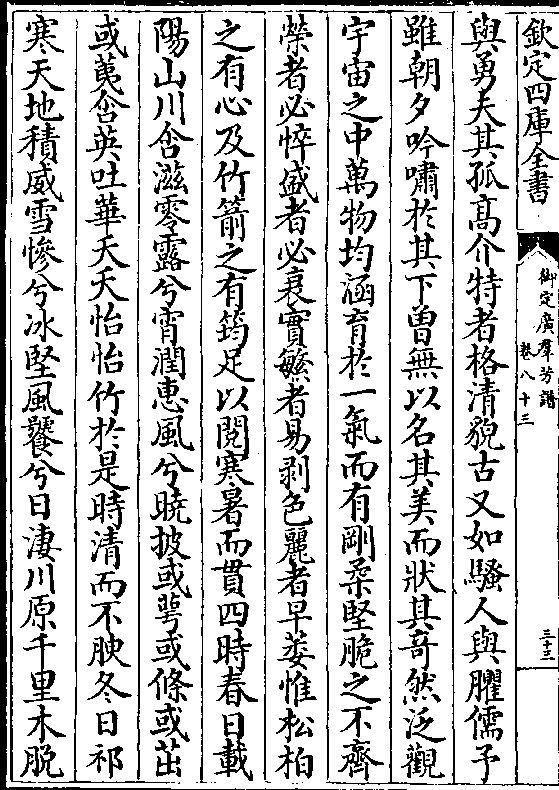 欽定四庫全書
御定廣羣芳譜
卷八十三
三十三
與勇夫其孤高介特者格清貌古又如騷人與臞儒予
雖朝夕吟嘯於其下曾無以名其美而狀其奇然泛觀
宇宙之中萬物均涵育於一氣而有剛柔堅脆之不齊
榮者必悴盛者必衰實繁者易剥色麗者早萎惟松柏
之有心及竹箭之有筠足以閱寒暑而貫四時春日載
陽山川含滋零露兮宵潤惠風兮曉披或萼或條或茁
或荑含英吐華夭夭怡怡竹於是時清而不腴冬日祁
寒天地積威雪慘兮冰堅風饕兮日凄川原千里木脱